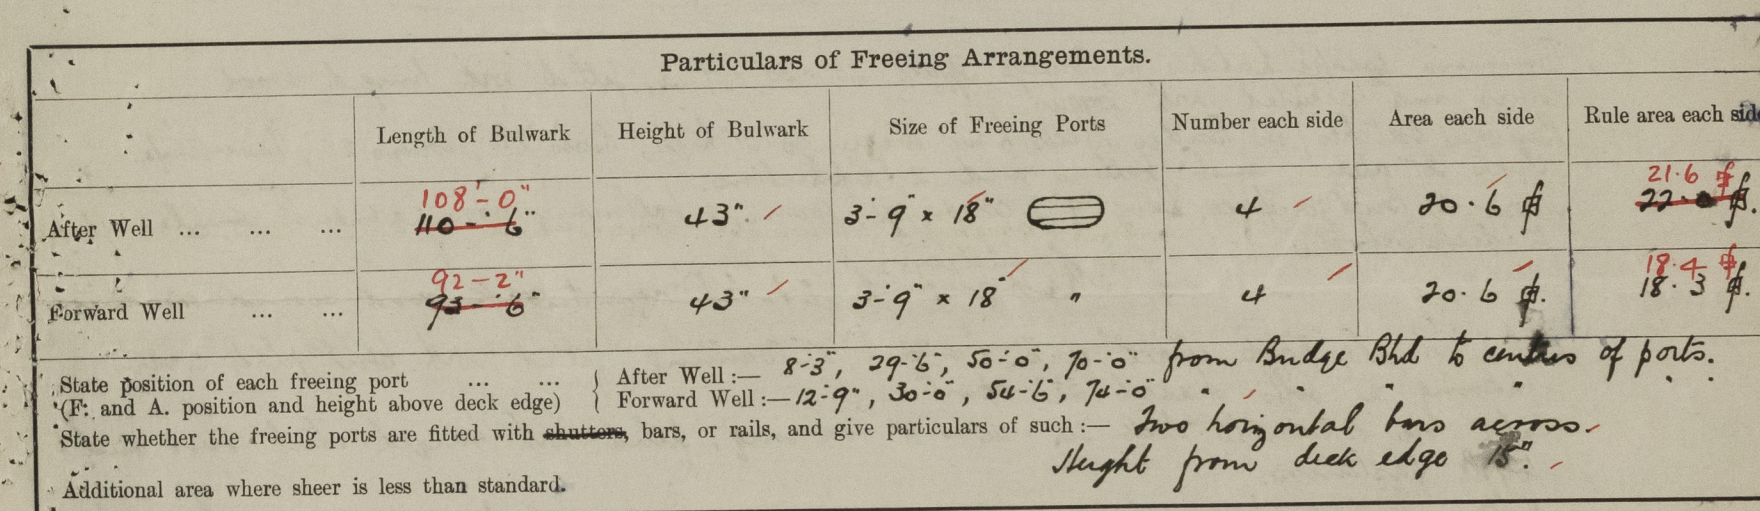 Particulars of Freeing Arrangements.
Length of Bulwark Height of Bulwark Size of Freeing Ports Number each side Area each side Rule area each side
108'-0" 21·6
After Well ... ... ... 110-6" 43" 3'-9" x 18" 4 20·6 22·0
92-2" 18·4
Forward Well ... ... 93-6" 43" 3'-9" x 18" " 4 20·6 18·3
State position of each freeing port ... ... After Well :— 8'-3", 29'-6", 50'-0", 70'-0" from Bridge Bhd to centres of ports.
(F. and A. position and height above deck edge) Forward Well :— 12'-9", 30'-0", 54'-6", 74'-0" " " " "
State whether the freeing ports are fitted with shutters, bars, or rails, and give particulars of such :— Two horizontal bars across.
Height from deck edge 15".
Additional area where sheer is less than standard.